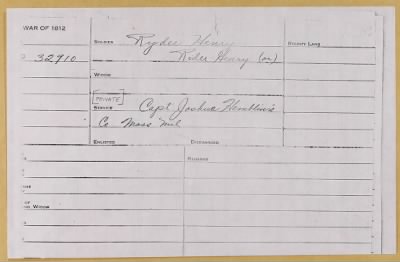 WAR OF 1812
SOLDIER Ryder Henry BOUNTY LAND
32910 Rider Henry (or)
WIDOW
PRIVATE
SERVICE Capt Joshua Hamblin's
Co Mass Mil
ENLISTED DISCHARGED
REMARKS
OF
WIDOW